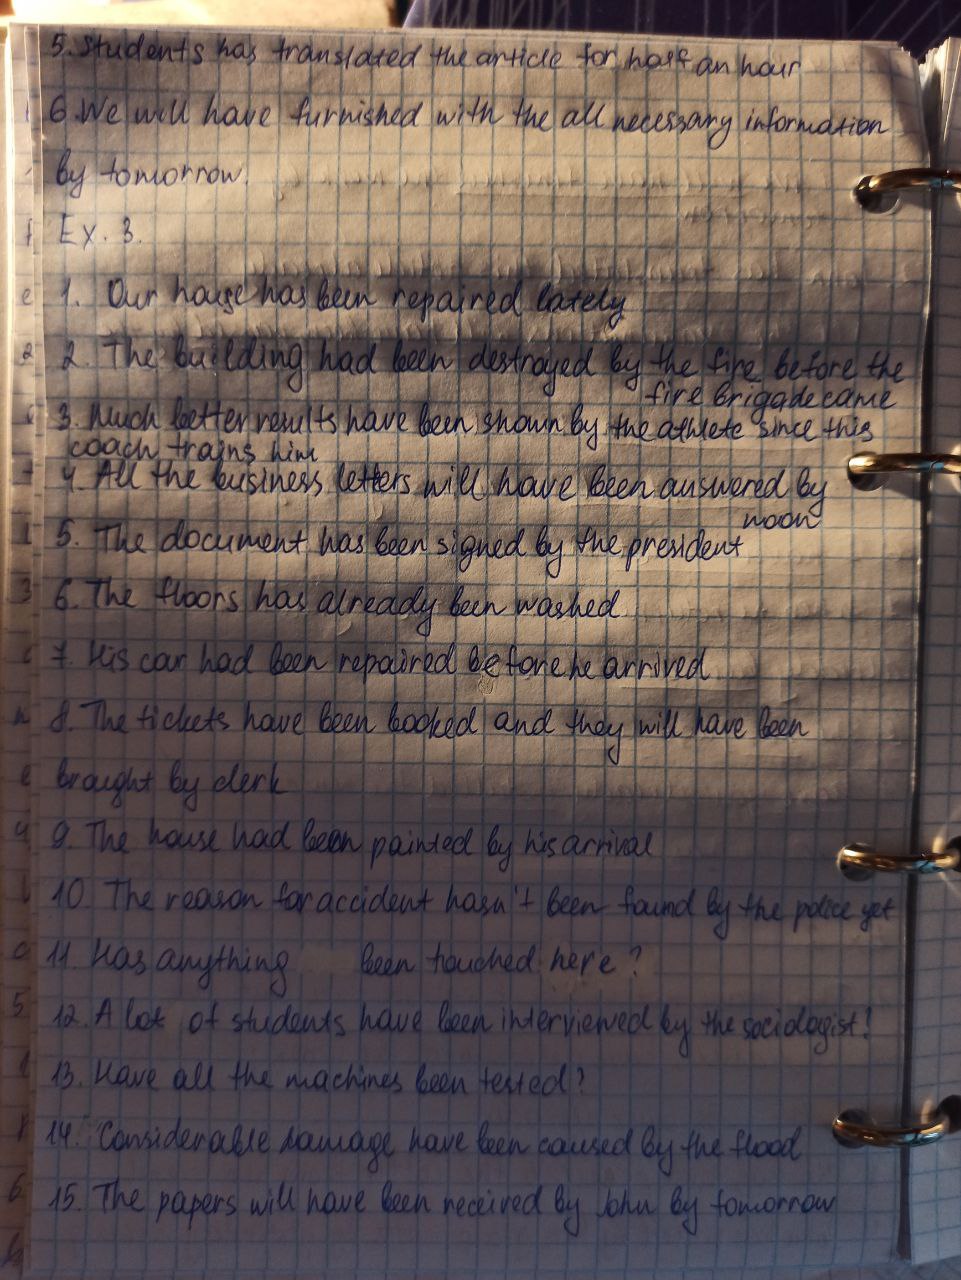 5. Students has translated the article for half an hour
6. We will have furnished with the all necessary information
by tomorrow.
Ex. 3.
1. Our house has been repaired lately
2. The building had been destroyed by the fire before the
fire brigade came
3. Much better results have been shown by the athlete since this
coach trains him
4. All the business letters will have been answered by
noon
5. The document has been signed by the president
6. The floors has already been washed
7. His car had been repaired before he arrived
8. The tickets have been booked and they will have been
brought by clerk
9. The house had been painted by his arrival
10. The reason for accident hasn't been found by the police yet
11. Has anything been touched here?
12. A lot of students have been interviewed by the sociologist!
13. Have all the machines been tested?
14. Considerable damage have been caused by the flood
15. The papers will have been received by John by tomorrow